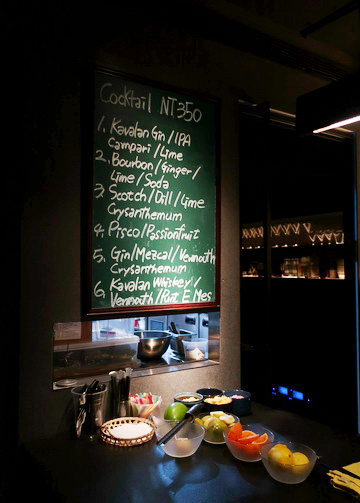 Cocktail NT350
1. Kavalan Gin/IPA
Campari/Lime
2. Bourbon/Ginger/
Lime/Soda
3. Scotch/Dill/Lime
Crysanthemum
4. Pisco/Passionfruit
5. Gin/Mezcal/Vermouth
Crysanthemum
6. Kavalan Whiskey/
Vermouth/Punt E Mes